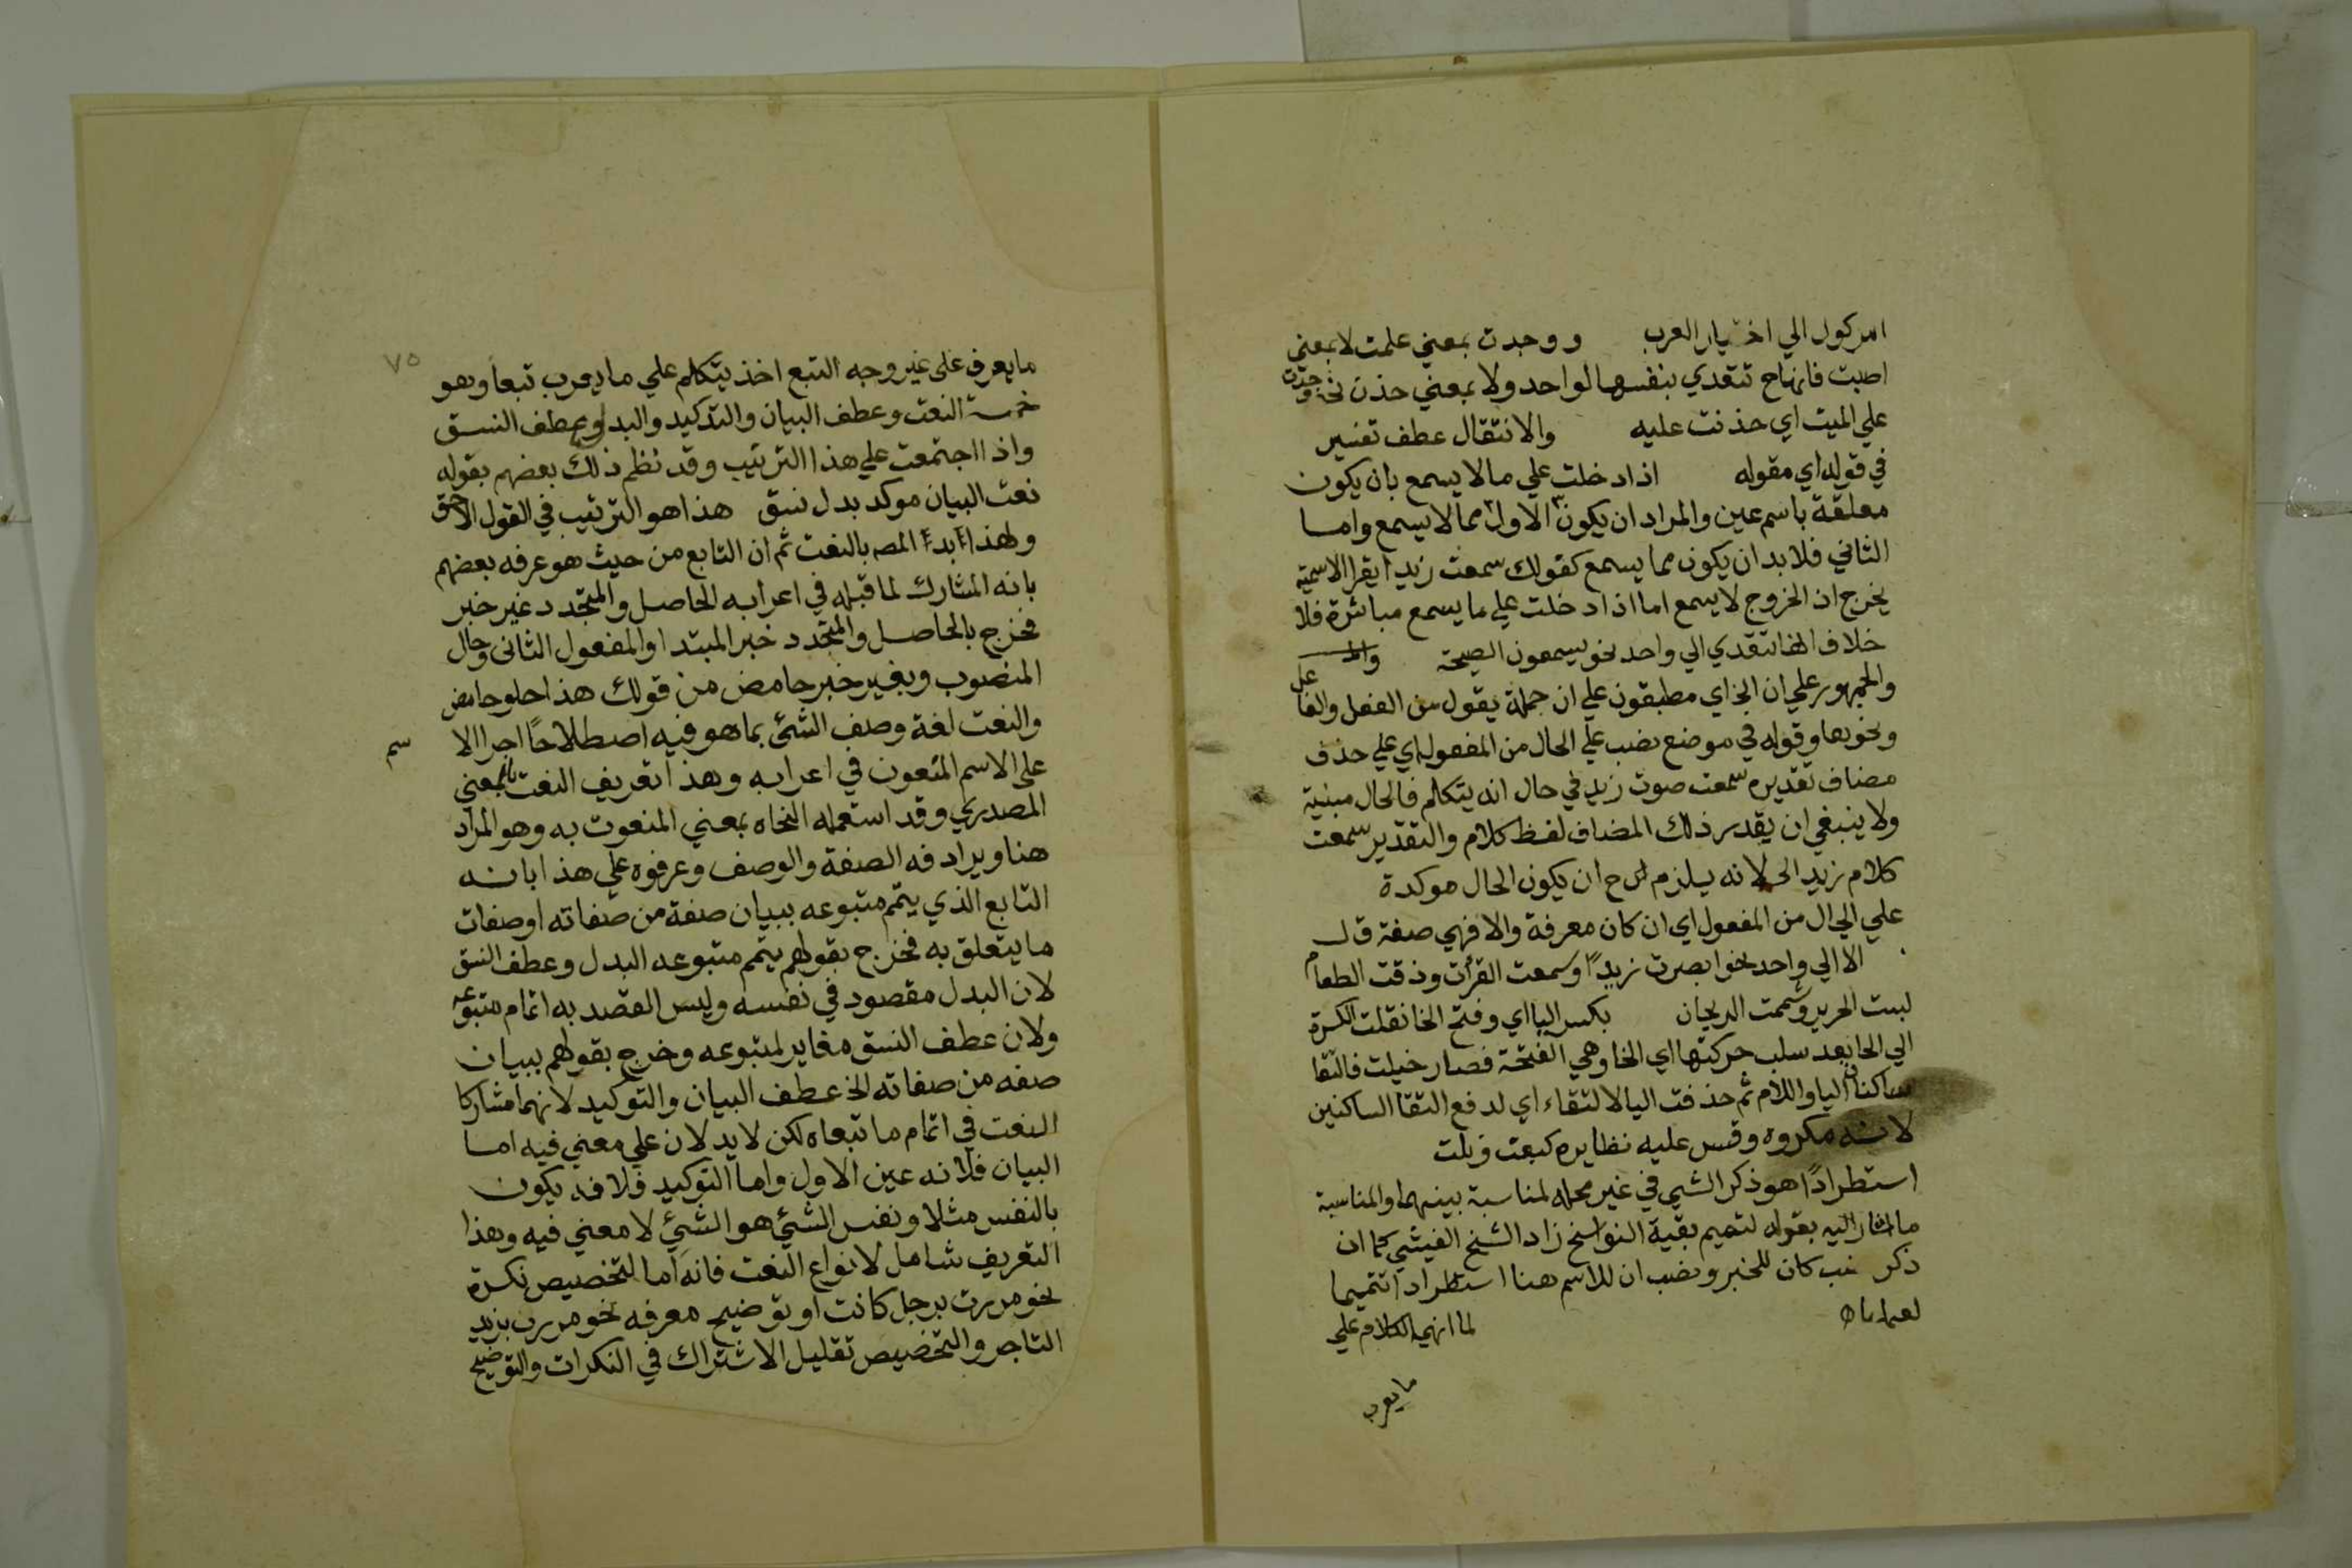 امر كول الي اختيار العرب ووجدت بمعني علمت لا بمعني
اصبت فانها ح تتعدي بنفسها لواحد ولا بمعني حذن نحو وجدت
علي الميت اي حذنت عليه والانتقال عطف تفسير
في قوله اي مقوله اذا دخلت علي ما لا يسمع بان يكون
معلقة باسم عين والمراد ان يكون الاول مما لا يسمع واما
الثاني فلا بد ان يكون مما يسمع كقولك سمعت زيدا يقرا الاسمية
يخرج اذ الخروج لا يسمع اما اذا دخلت علي ما يسمع مباشرة فلا
خلاف انها تتعدي الي واحد نحو يسمعون الصيحة
والجمهور علي ان الخ اي مطبقون علي ان جملة يقول من الفعل والفاعل
ونحوها وقوله في موضع نصب علي الحال من المفعول اي علي حذف
مضاف تقديره سمعت صوت زيد في حال انه يتكلم فالحال مبنية
ولا ينبغي ان يقدر ذلك المضاف لفظ كلام والتقدير سمعت
كلام زيد الخ لانه يلزم ح ان يكون الحال موكدة
علي الحال من المفعول اي ان كان معرفة والا فهي صفة قال
الا الي واحد نحو ابصرت زيدًا وسمعت القرأن وذقت الطعام
لبست الحرير وشممت الريحان بكسر اليا اي وفتح الخا نقلت الكسرة
الي الخا بعد سلب حركتها اي الخا وهي الفتحة فصار خيلت فالتقا
ساكنان اليا واللام ثم حذفت اليا لالتقاء اي لدفع التقا الساكنين
لانه مكروه وقس عليه نظايره كبعت وبلت
استطرادًا هو ذكر الشي في غير محله لمناسبة بينهما والمناسبة
ما اشار اليه بقوله لتميم بقية النواسخ زاد الشيخ الفيشي كما ان
ذكر نصب كان للخبر ونصب ان للاسم هنا استطرادا تتميما
لما انهي الكلام علي
ما يعرب
٧٥
ما يعرب علي غير وجه التبع اخذ يتكلم علي ما يعرب تبعا وهو
خمسة النعت وعطف البيان والتوكيد والبدل وعطف النسق
واذا اجتمعت علي هذا الترتيب وقد نظم ذلك بعضهم بقوله
نعت البيان موكد بدل نسق هذا هو الترتيب في القول الاحق
ولهذا ابدأ المص بالنعت ثم ان التابع من حيث هو عرفه بعضهم
بانه المشارك لما قبله في اعرابه الحاصل والمتجدد غير خبر
فخرج بالحاصل والمتجدد خبر المبتدا والمفعول الثاني وحال
المنصوب وبغير خبر حامض من قولك هذا حلو حامض
والنعت لغة وصف الشئ بما هو فيه اصطلاحًا اجرا الا
سم
علي الاسم المنعوت في اعرابه وهذا تعريف النعت بالمعني
المصدري وقد استعمله النحاه بمعني المنعوت به وهو المراد
هنا ويرادفه الصفة والوصف وعرفوه علي هذا بانه
التابع الذي يتمم متبوعه ببيان صفة من صفاته او صفات
ما يتعلق به فخرج بقولهم يتمم متبوعه البدل وعطف النسق
لان البدل مقصود في نفسه وليس القصد به اتمام متبوعه
ولان عطف النسق مغاير لمتبوعه وخرج بقولهم ببيان
صفه من صفاته الخ عطف البيان والتوكيد لانهما مشاركا
النعت في اتمام ما تبعاه لكن لا يدلان علي معني فيه اما
البيان فلانه عين الاول واما التوكيد فلانه يكون
بالنفس مثلا ونفس الشئ هو الشئ لا معني فيه وهذا
التعريف شامل لانواع النعت فانه اما لتخصيص نكرة
نحو مررت برجل كانت او توضيح معرفه نحو مررت بزيد
التاجر والتخصيص تقليل الاشتراك في النكرات والتوضيح